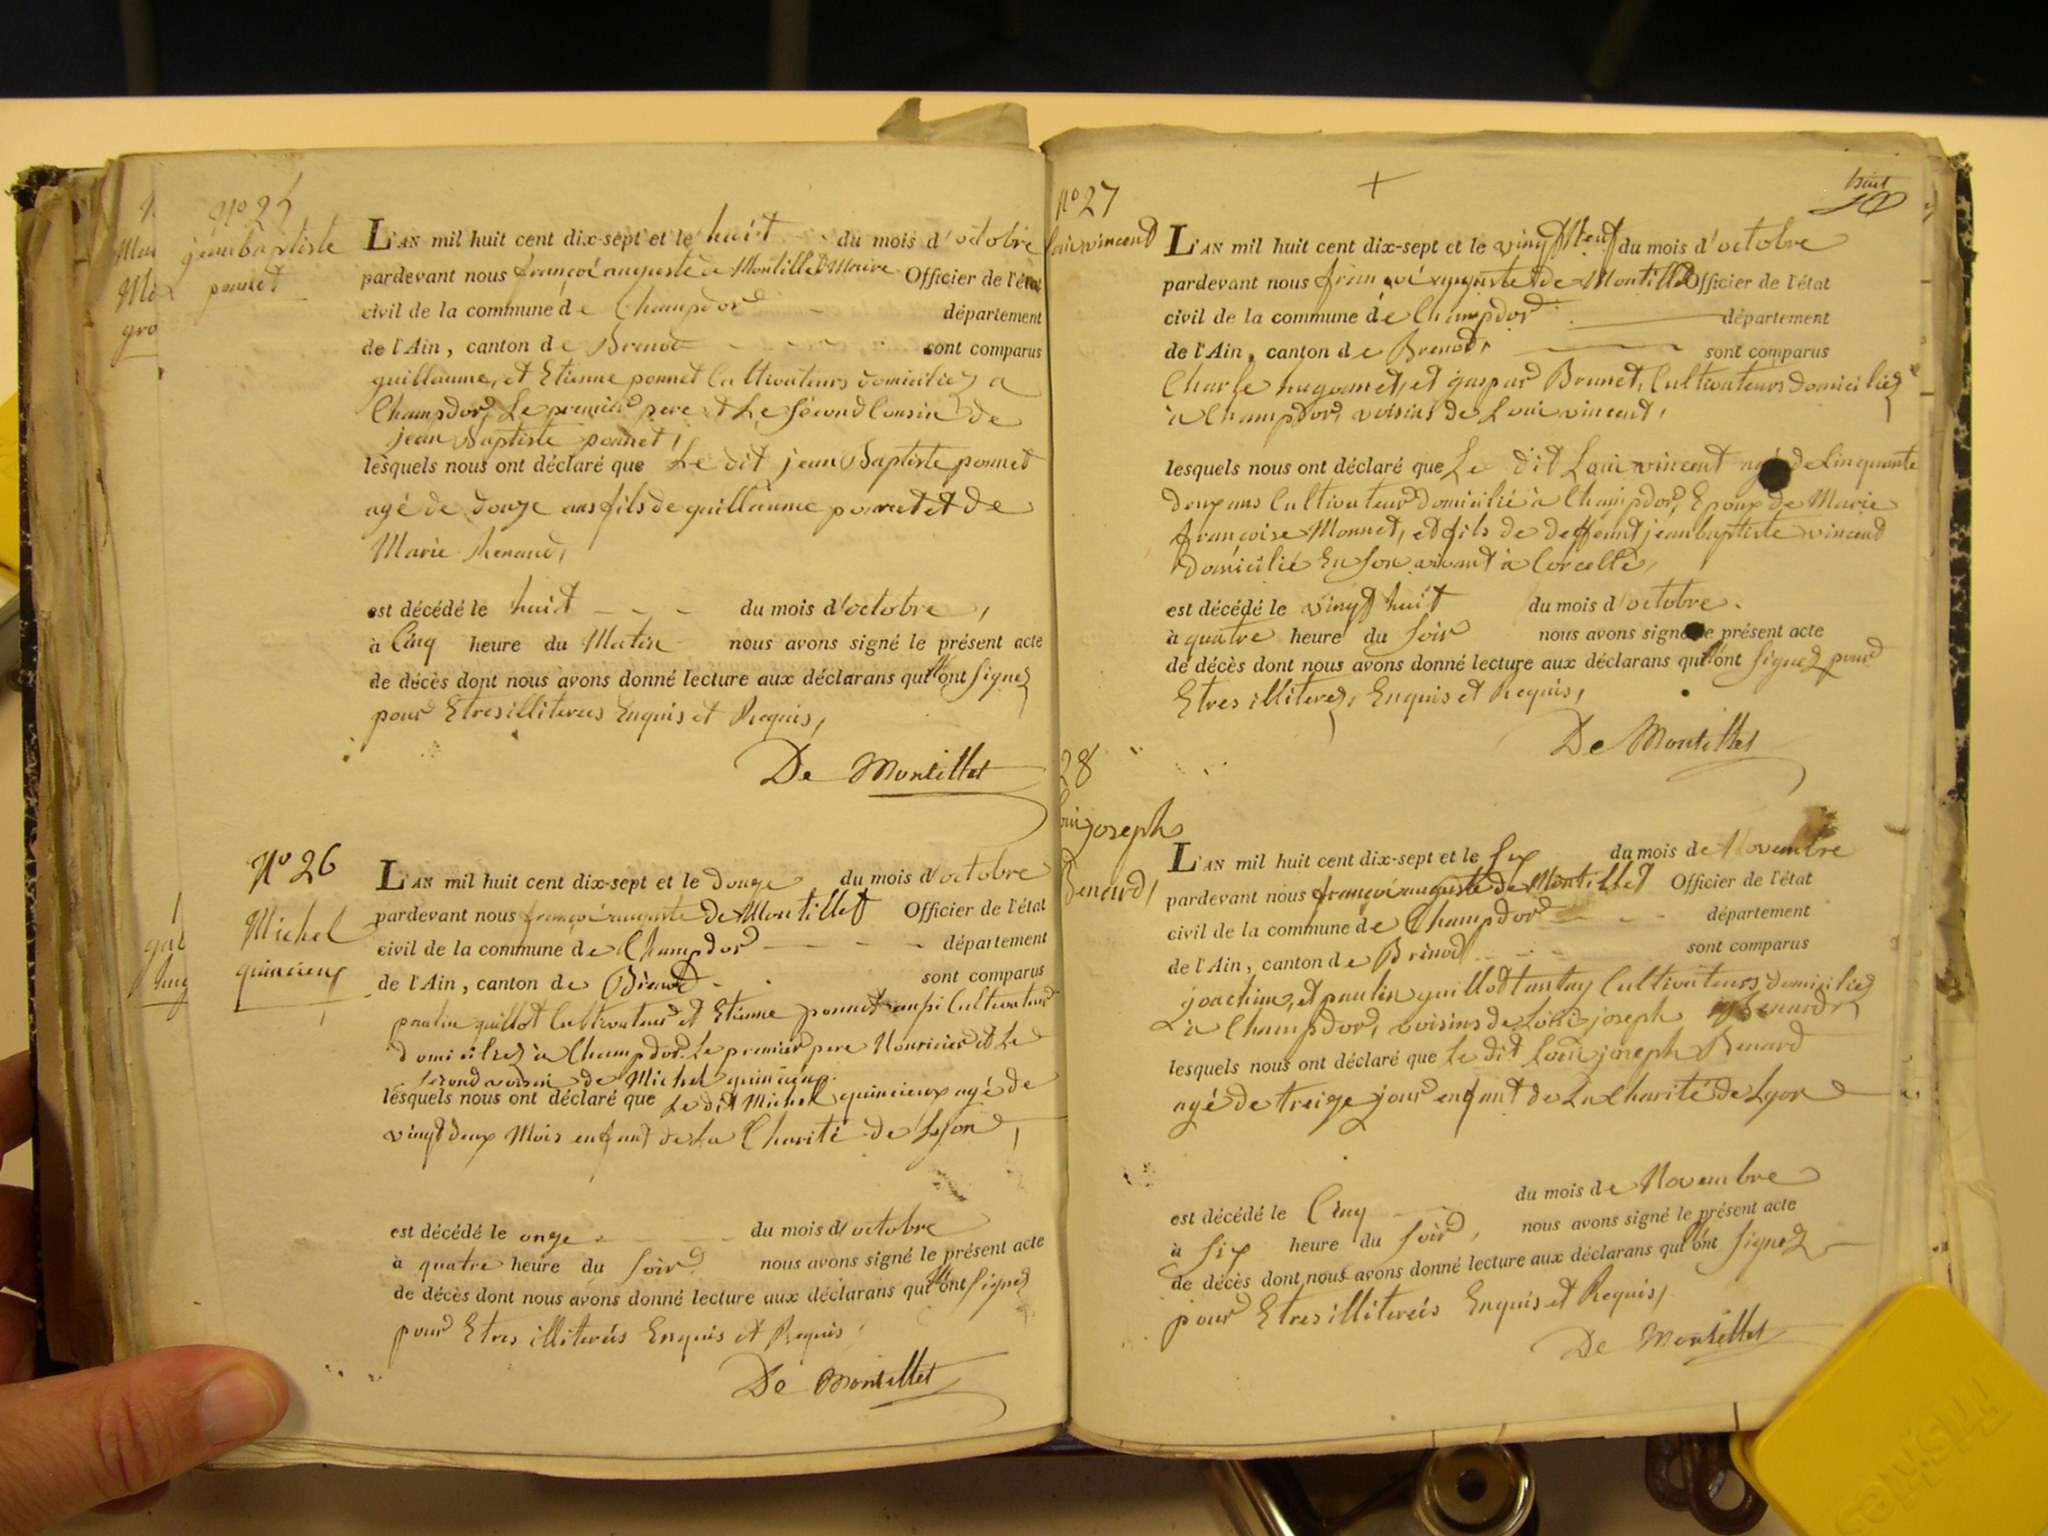 N° 25
jean baptiste
ponnet
L'AN mil huit cent dix-sept et le huit du mois d'octobre
pardevant nous françoi auguste de Montillet Maire Officier de l'état
civil de la commune de Champdor département
de l'Ain, canton de Brenod sont comparus
guillaume, et Etienne ponnet Cultivateurs domiciliez a
Champdor, Le premier pere et Le Second Cousin de
jean Baptiste ponnet,
lesquels nous ont déclaré que Le dit jean Baptiste ponnet
agé de douze ans fils de guillaume ponnet et de
Marie Renaud,
est décédé le huit du mois d'octobre,
à Cinq heure du Matin nous avons signé le présent acte
de décès dont nous avons donné lecture aux déclarans qui n'ont Signez
pour Etres illiterees Enquis et Requis,
De Montillet
N° 26
Michel
quincieux
L'AN mil huit cent dix-sept et le douze du mois d'octobre
pardevant nous françoi auguste de Montillet Officier de l'état
civil de la commune de Champdor département
de l'Ain, canton de Brenod sont comparus
paulin guillot Cultivateur et Etienne ponnet aussi Cultivateur
domiciliez à Champdor Le premier pere Nouricier et Le
Second voisin de Michel quincieux.
lesquels nous ont déclaré que Le dit Michel quincieux agé de
vingt deux Mois enfant de La Charité de Lyon,
est décédé le onze du mois d'octobre
à quatre heure du Soir nous avons signé le présent acte
de décès dont nous avons donné lecture aux déclarans qui n'ont Signez
pour Etres illiterés Enquis et Requis,
De Montillet
N° 27
Loui vincent
L'AN mil huit cent dix-sept et le vingt Neuf du mois d'octobre
pardevant nous françoi auguste de Montillet Officier de l'état
civil de la commune de Champdor département
de l'Ain, canton de Brenod, sont comparus
Charle hugonnet, et gaspar Brunet, Cultivateurs domiciliez
à Champdor, voisins de Loui vincent,
lesquels nous ont déclaré que Le dit Loui vincent agé de Cinquante
deux ans Cultivateur domicilié à Champdor, Epoux de Marie
françoise Monnet, et fils de deffeunt jean baptiste vincent
domicilié En Son vivant à Corcelle,
est décédé le vingt huit du mois d'octobre.
à quatre heure du Soir nous avons signé le présent acte
de décès dont nous avons donné lecture aux déclarans qui n'ont Signez pour
Etres illiterez, Enquis et Requis,
De Montillet
28
joseph
Benard,
L'AN mil huit cent dix-sept et le Six du mois de Novembre
pardevant nous françoi auguste de Montillet Officier de l'état
civil de la commune de Champdor département
de l'Ain, canton de Brénod sont comparus
joachim, et paulin guillot tantay Cultivateurs domiciliez
à Champdor, voisins de Loui joseph Benard,
lesquels nous ont déclaré que Le dit Loui joseph Benard
agé de treize jour enfant de La Charité de Lyon
est décédé le Cinq du mois de Novembre
à Six heure du Soir, nous avons signé le présent acte
de décès dont nous avons donné lecture aux déclarans qui n'ont Signez
pour Etres illiterés Enquis et Requis,
De Montillet